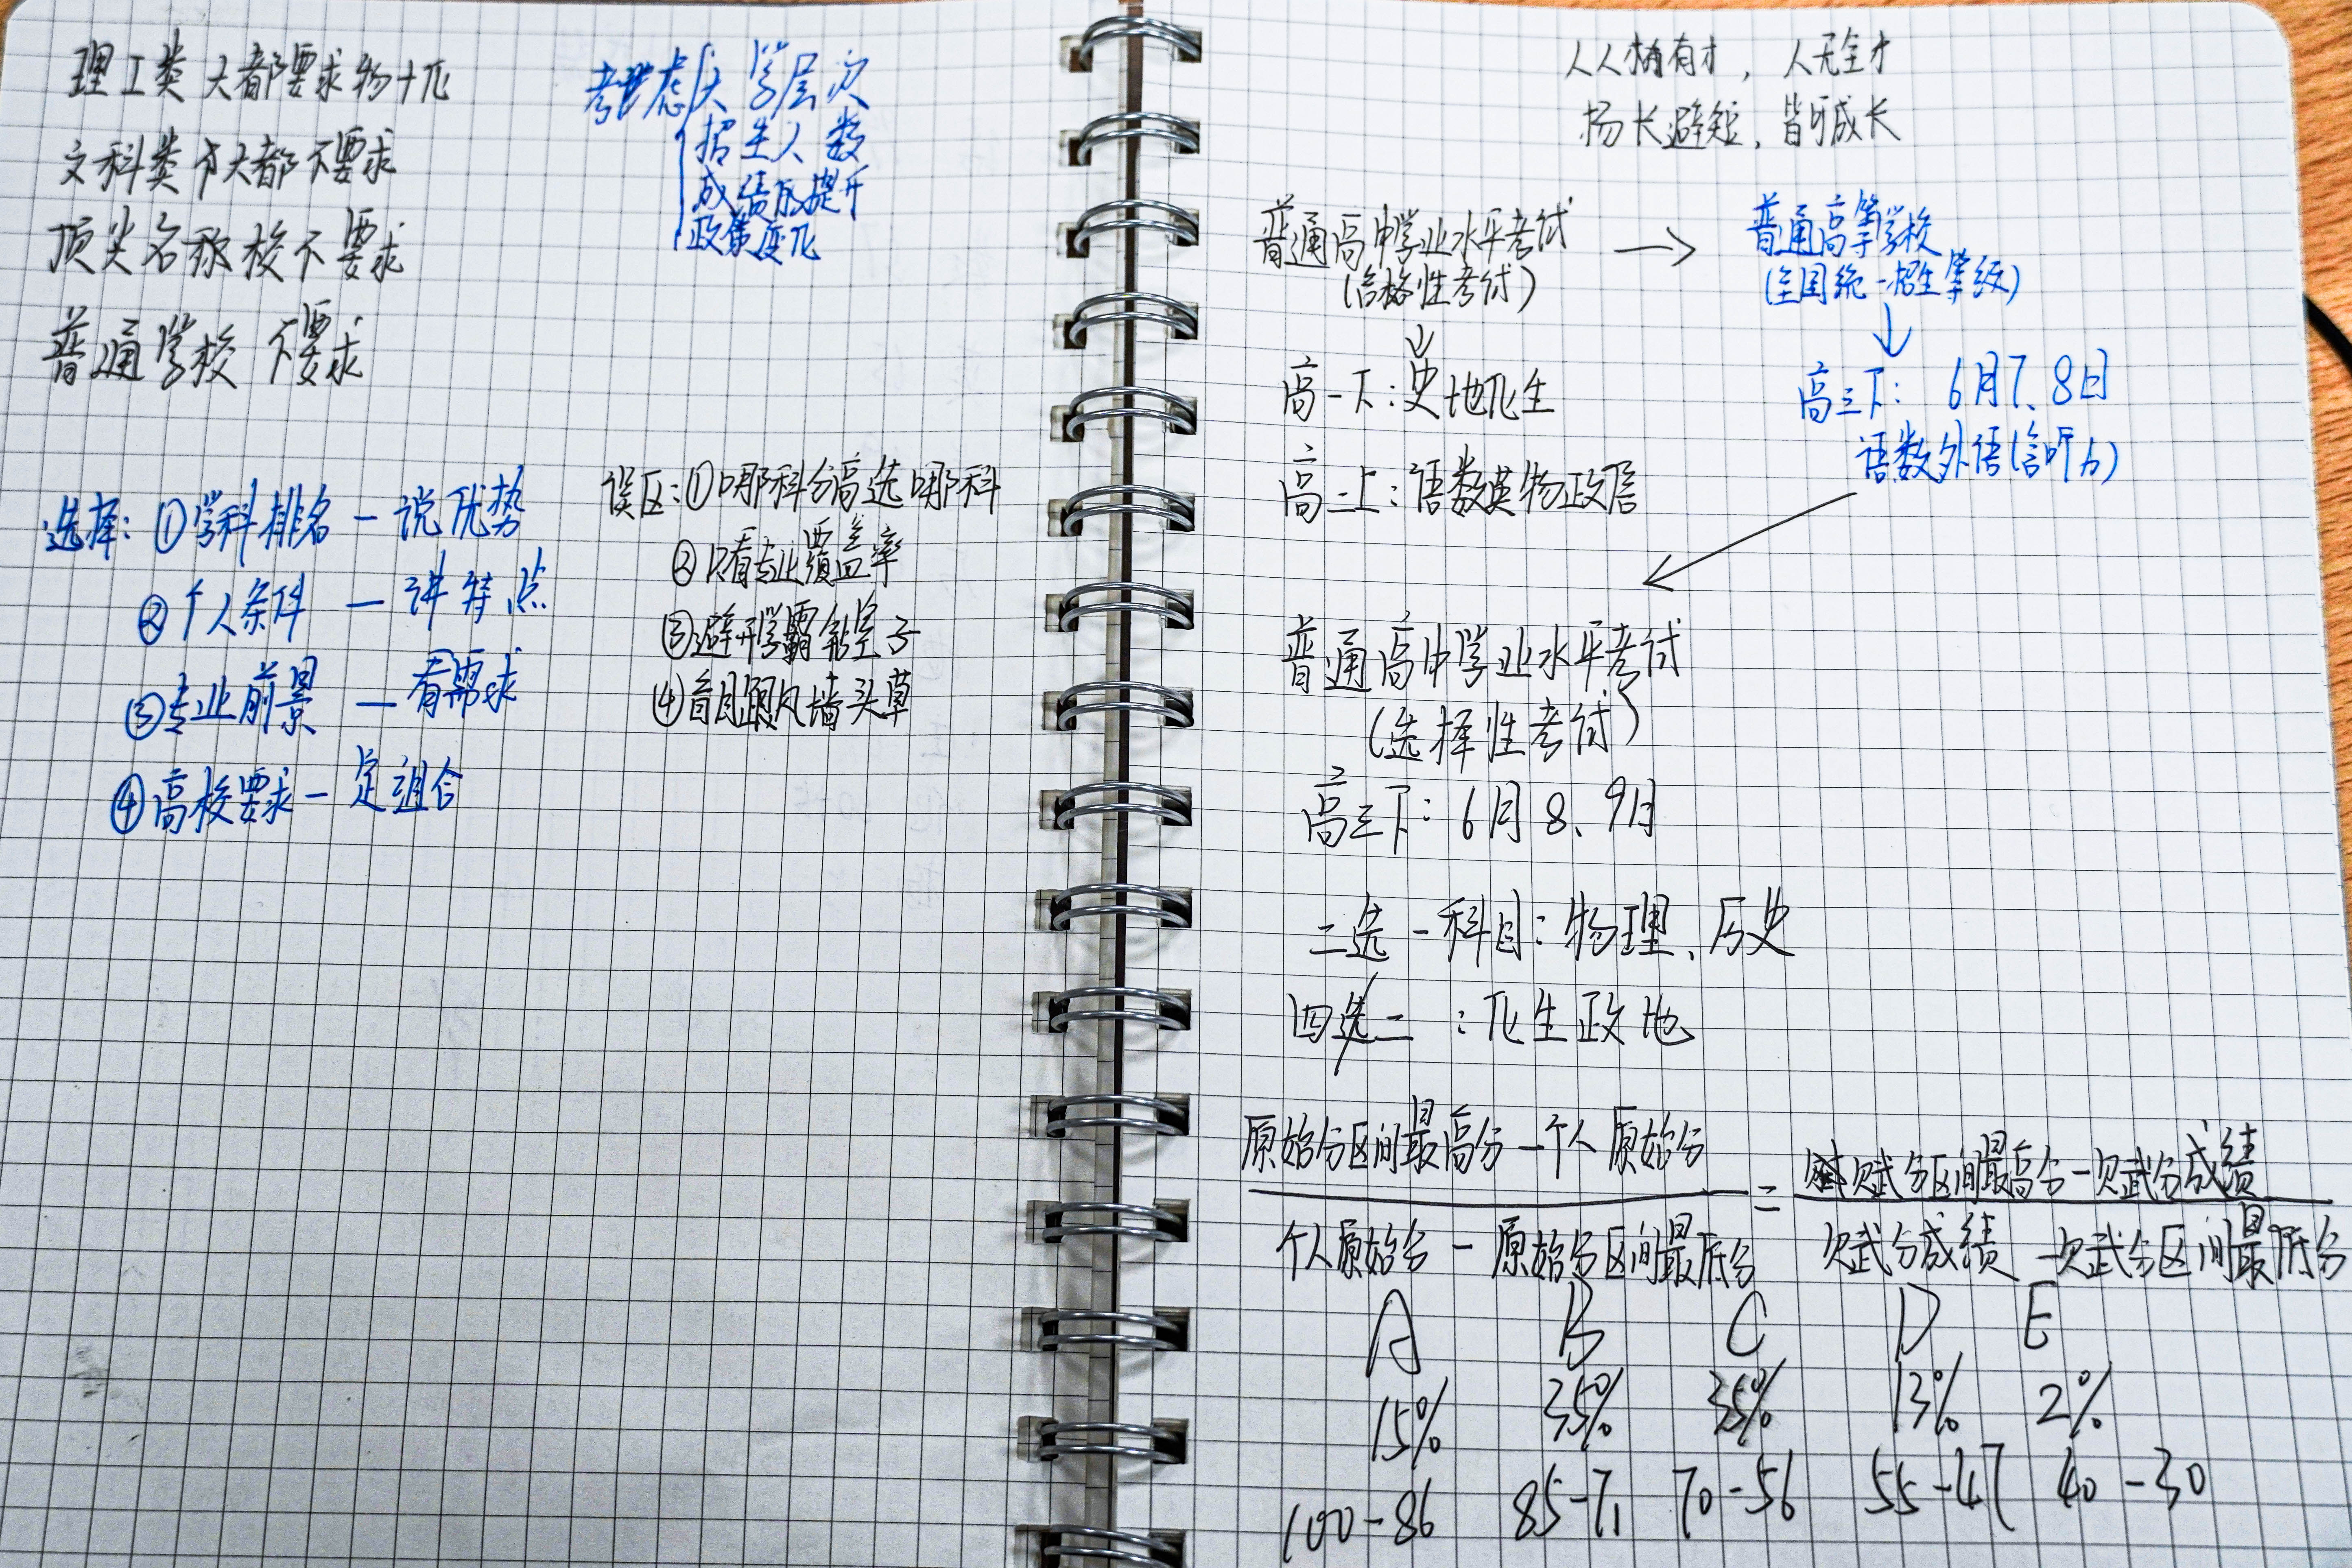 理工类 大都要求物+化
文科类 大都不要求
顶尖名称校不要求
普通学校 不要求
考虑 大学层次
招生人数
成绩提升
政策变化
选择：①学科排名－说优势
②个人条件－讲特点
③专业前景－看需求
④高校要求－定组合
误区：①哪科分高选哪科
②只看专业覆盖率
③避开学霸钻空子
④盲目跟风墙头草
人人有才，人无全才
扬长避短，皆可成长
普通高中学业水平考试 → 普通高等学校
(合格性考试) (全国统一招生等级)
高一下：史地化生
高二上：语数英物政信
高三下：6月7、8日
语数外语(含听力)
普通高中学业水平考试
(选择性考试)
高三下：6月8、9日
二选一科目：物理、历史
四选二：化生政地
原始分区间最高分－个人原始分 = 赋分区间最高分－赋分成绩
个人原始分－原始分区间最底分 赋分成绩－赋分区间最底分
A B C D E
15% 35% 35% 13% 2%
100-86 85-71 70-56 55-41 40-30